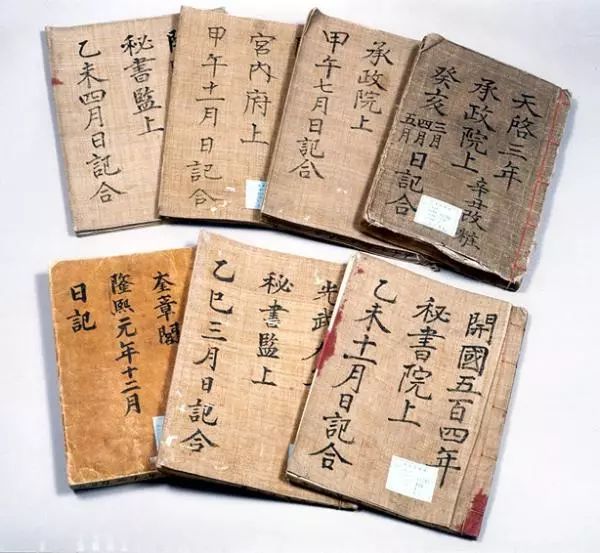 天啓三年
承政院上
辛丑改粧
癸亥三月四月五月日記合
承政院上
甲午七月日記合
宮内府上
甲午十一月日記合
秘書監上
乙未四月日記合
開國五百四年
秘書院上
乙未十一月日記合
光武
秘書監上
乙巳三月日記合
奎章閣
隆熙元年十二月
日記